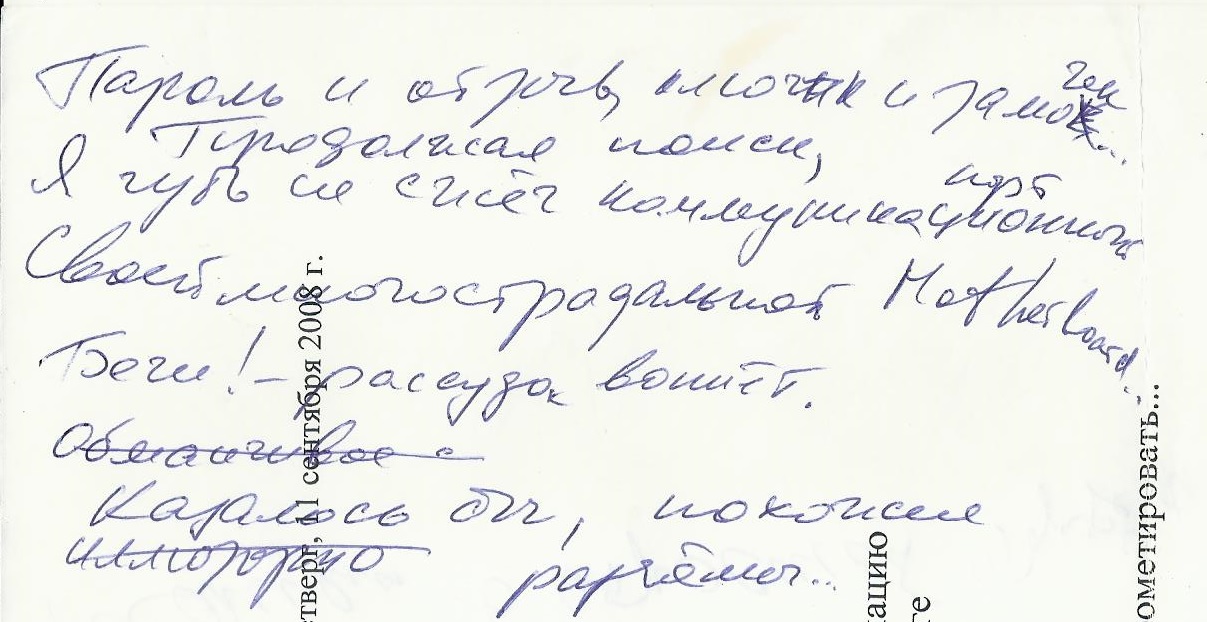 Пароль и отзыв, ключик и замочек...
Продолжая поиск,
Я чуть не сжёг коммуникационный порт
Своей многострадальной Motherboard...
Беги! – рассудок вопиёт.
Обманчивое
Казалось бы, похожие
иллюзорно
разъёмы...
стверг, 11 сентября 2008 г.
ацию
те
ометировать...